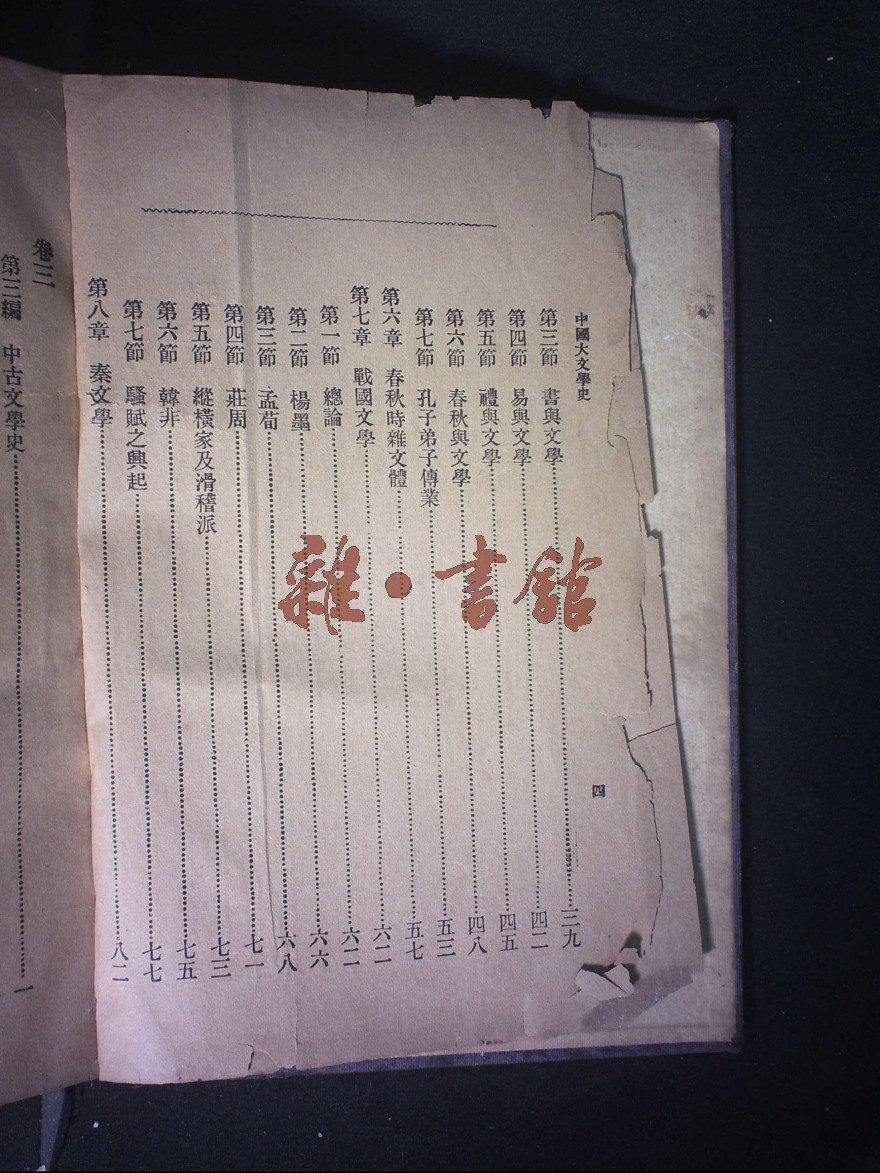 中國大文學史
四
第三節 書與文學 三九
第四節 易與文學 四二
第五節 禮與文學 四五
第六節 春秋與文學 四八
第七節 孔子弟子傳業 五三
第六章 春秋時雜文體 五七
第七章 戰國文學 六二
第一節 總論 六二
第二節 楊墨 六六
第三節 孟荀 六八
第四節 莊周 七一
第五節 縱橫家及滑稽派 七三
第六節 韓非 七五
第七節 騷賦之興起 七七
第八章 秦文學 八二
卷三
第三編 中古文學史 一
雜·書館